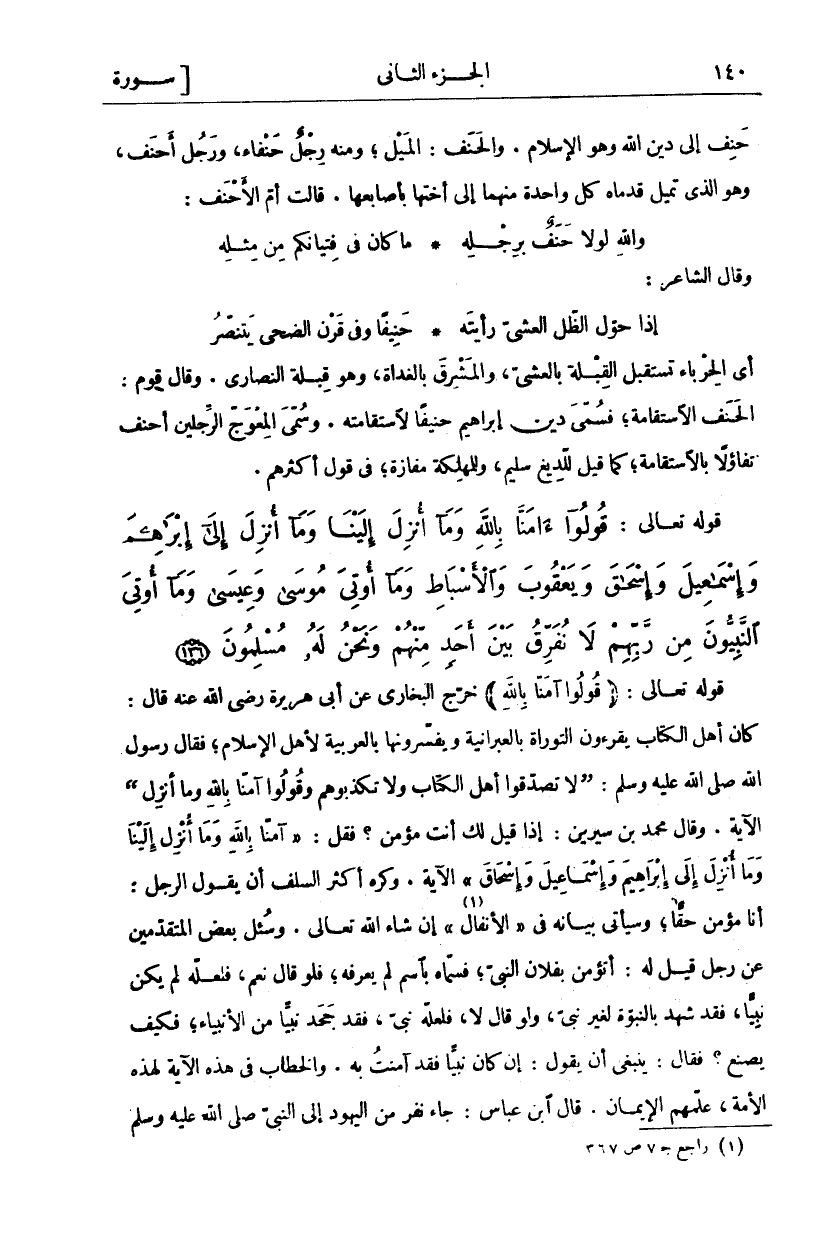 ١٤٠ الجـزء الثـانى [ سـورة
حَنِف إلى دين الله وهو الإسلام . والحَنَف : المَيْل ؛ ومنه رِجْلٌ حَنْفاء، ورَجُل أحنَف ،
وهو الذى تميل قدماه كل واحدة منهما إلى أختها بأصابعها . قالت أمّ الأَحْنَف :
واللهِ لولا حَنَفٌ بِرِجْـلِهِ * ما كان فى فِتيانكم مِن مِثـلِهِ
وقال الشاعر :
إذا حوّل الظّل العشىّ رأيتَه * حَنِيفًا وفى قَرْن الضحى يَتنصّرُ
أى الحِرْباء تستقبل القِبْلة بالعشىّ ، والمَشْرِقَ بالغداة، وهو قِبـلة النصارى . وقال قوم :
الحَنَف الاستقامة؛ فسُمِّىَ دين إبراهيم حنيفًا لاستقامته . وسُمِّىَ المِعْوَجّ الرِّجلين أحنف
تفاؤلًا بالاستقامة؛ كما قيل للّديغ سليم ، وللمهلكة مفازة؛ فى قول أكثرهم .
قوله تعـالى : قُولُوٓا۟ ءَامَنَّا بِٱللَّهِ وَمَآ أُنزِلَ إِلَيْنَـا وَمَآ أُنزِلَ إِلَىٰٓ إِبْرَٰهِـۧمَ
وَإِسْمَـٰعِيلَ وَإِسْحَـٰقَ وَيَعْقُوبَ وَٱلْأَسْبَاطِ وَمَآ أُوتِىَ مُوسَىٰ وَعِيسَىٰ وَمَآ أُوتِىَ
ٱلنَّبِيُّونَ مِن رَّبِّهِمْ لَا نُفَرِّقُ بَيْنَ أَحَدٍ مِّنْهُمْ وَنَحْنُ لَهُۥ مُسْلِمُونَ ١٣٦
قوله تعـالى : ﴿ قُولُوا آمَنَّا بِاللهِ ﴾ خرّج البخارى عن أبى هريرة رضى الله عنه قال :
كان أهل الكتاب يقرءون التوراة بالعبرانية ويفسّرونها بالعربية لأهل الإسلام؛ فقال رسول
الله صلى الله عليه وسلم : ”لا تصدّقوا أهل الكتاب ولا تكذبوهم وقُولُوا آمنّا باللهِ وما أنزِل“
الآية . وقال محمد بن سيرين : إذا قيل لك أنت مؤمن ؟ فقل : « آمنّا بِاللهِ وَمَا أُنْزِل إِلَيْنَا
وَمَا أُنْزِلَ إِلَى إِبْرَاهِيمَ وَإِسْمَـاعِيلَ وَإِسْحَاقَ » الآية . وكره أكثر السلف أن يقـول الرجل :
أنا مؤمن حقًّا؛ وسيأتى بيـانه فى « الأنفال » (١) إن شاء الله تعـالى . وسُئل بعض المتقدّمين
عن رجل قيـل له : أتؤمن بفلان النبىّ؛ فسمّاه بآسم لم يعرفه؛ فلو قال نعم، فلعـلّه لم يكن
نبيًّا، فقد شهد بالنبوّة لغير نبىّ ، ولو قال لا، فلعلّه نبىّ ، فقد جَحَد نبيًّا من الأنبياء؛ فكيف
يصنع ؟ فقال : ينبغى أن يقول : إن كان نبيًّا فقد آمنتُ به . والخطاب فى هذه الآية لهذه
الأمة ، علّمهم الإيمـان . قال ابن عباس : جاء نفر من اليهود إلى النبىّ صلى الله عليه وسلم
(١) راجع جـ ٧ ص ٣٦٧